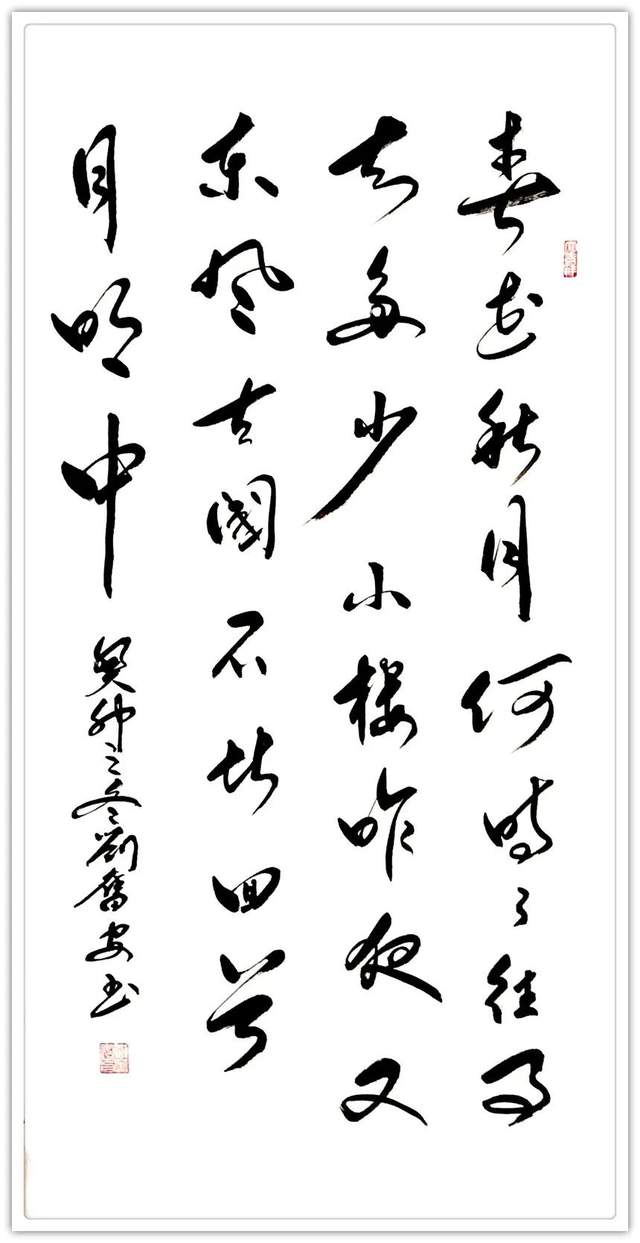 春花秋月何時了往事
知多少小樓昨夜又
東風故國不堪回首
月明中 癸卯之冬劉奮安书